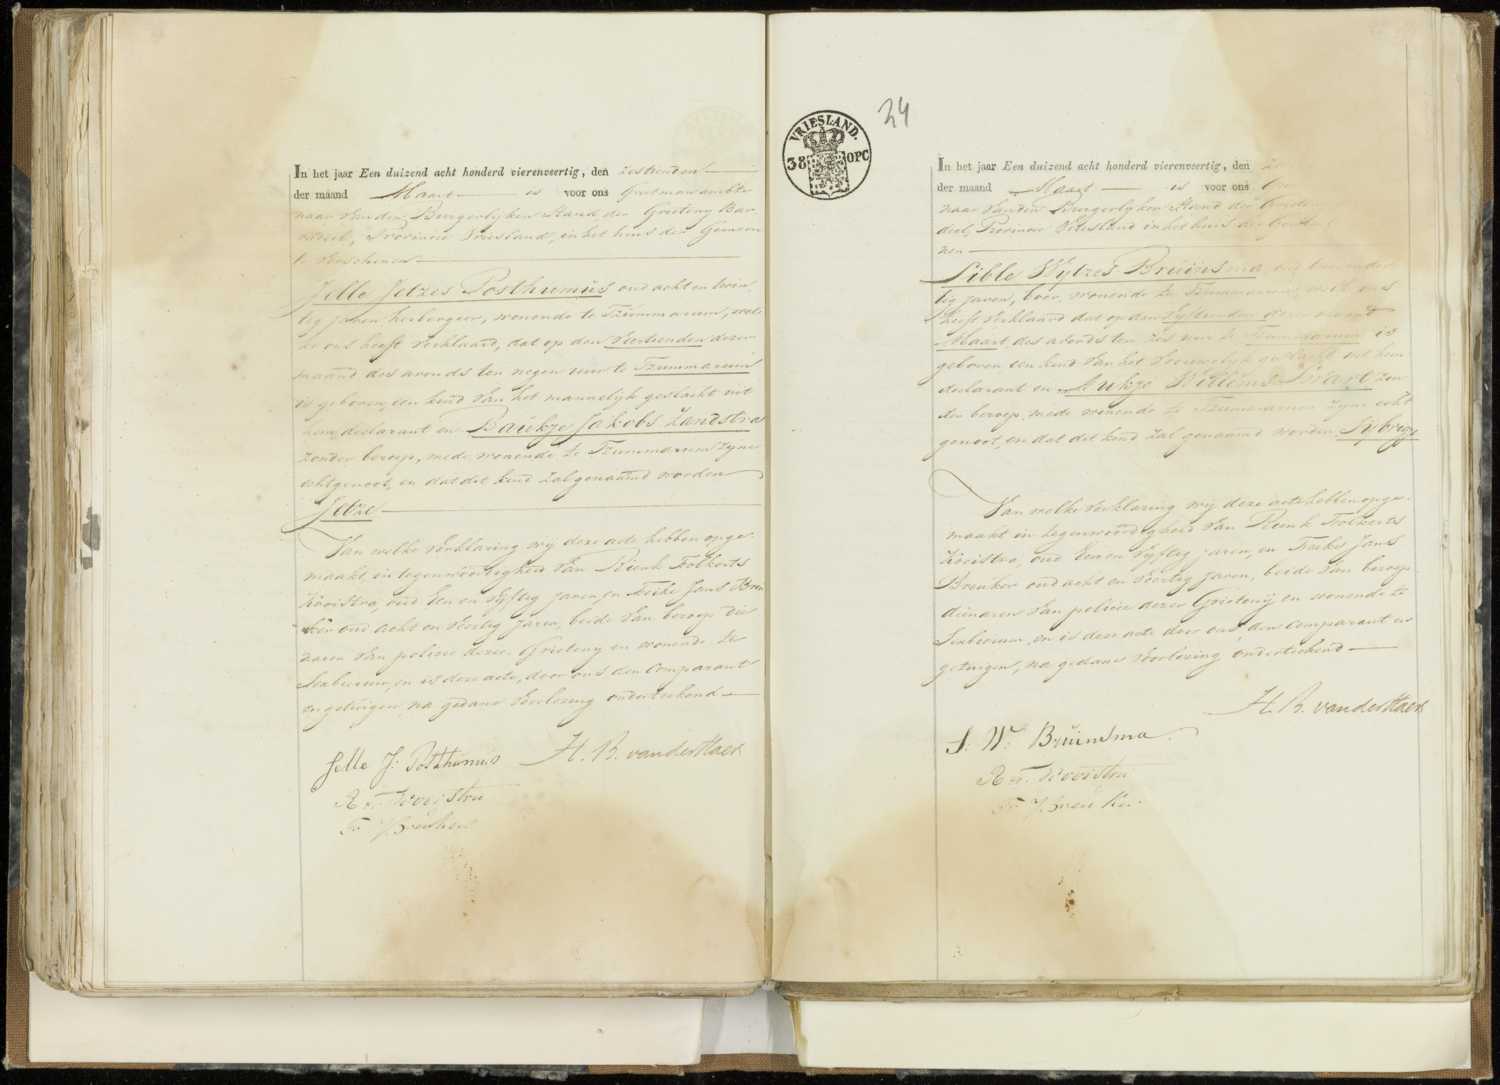 In het jaar Een duizend acht honderd vierenveertig, den zestienden
der maand Maart is voor ons Grietman ambte
naar van den Burgerlyken Stand der Grieteny Bar
radeel, Provincie Vriesland, in het huis der Gemeen
te verschenen
Jelle Jetzes Posthumus oud acht en twin
tig jaren, herbergier, wonende te Tzummarum, welk
ke ons heeft verklaard, dat op den veertienden dezer
maand des avonds ten negen ure te Tzummarum
is geboren, een kind van het mannelyk geslacht uit
hem declarant en Baukje Jakobs Zandstra
zonder beroep, mede wonende te Tzummarum zyne
echtgenoot, en dat dit kind zal genaamd worden
Jetze
Van welke verklaring wy deze acte hebben opge
maakt, in tegenwoordigheid van Rienk Folkerts
Kooistra, oud een en vyftig jaren, en Feike Jans Breu
ker oud acht en veertig jaren, beide van beroep die
naren van policie dezer Grieteny en wonende te
Sexbierum, en is deze acte, door ons den comparant
en getuigen, na gedane voorlezing onderteekend
Jelle J: Posthumus H. B. van der Haer
R F. Kooistra
F. J. Breuker
VRIESLAND.
38 OPC
24
In het jaar Een duizend acht honderd vierenveertig, den
der maand Maart is voor ons
naar van den Burgerlyken Stand der
deel, Provincie Vriesland in het huis der
nen
Sible Wytzes Bruinsma
tig jaren, boer, wonende te Tzummarum, welke ons
heeft verklaard dat op den vyftienden dezer maand
Maart des avonds ten zes ure te Tzummarum is
geboren een kind van het vrouwelyk geslacht uit hem
declarant en Aukje Willems Swart zon
der beroep, mede wonende te Tzummarum zyne echt
genoot, en dat dit kind zal genaamd worden Sybrigj
Van welke verklaring wy deze acte hebben opge-
maakt in tegenwoordigheid van Rienk Folkerts
Kooistra, oud een en vyftig jaren, en Feike Jans
Breuker oud acht en veertig jaren, beide van beroep
dienaren van policie dezer Grietenij en wonende te
Sexbierum, en is deze acte door ons, den comparant en
getuigen, na gedane voorlezing onderteekend
H. B. van der Haer
S: W: Bruinsma.
R F. Kooistra
F. J. Breuker